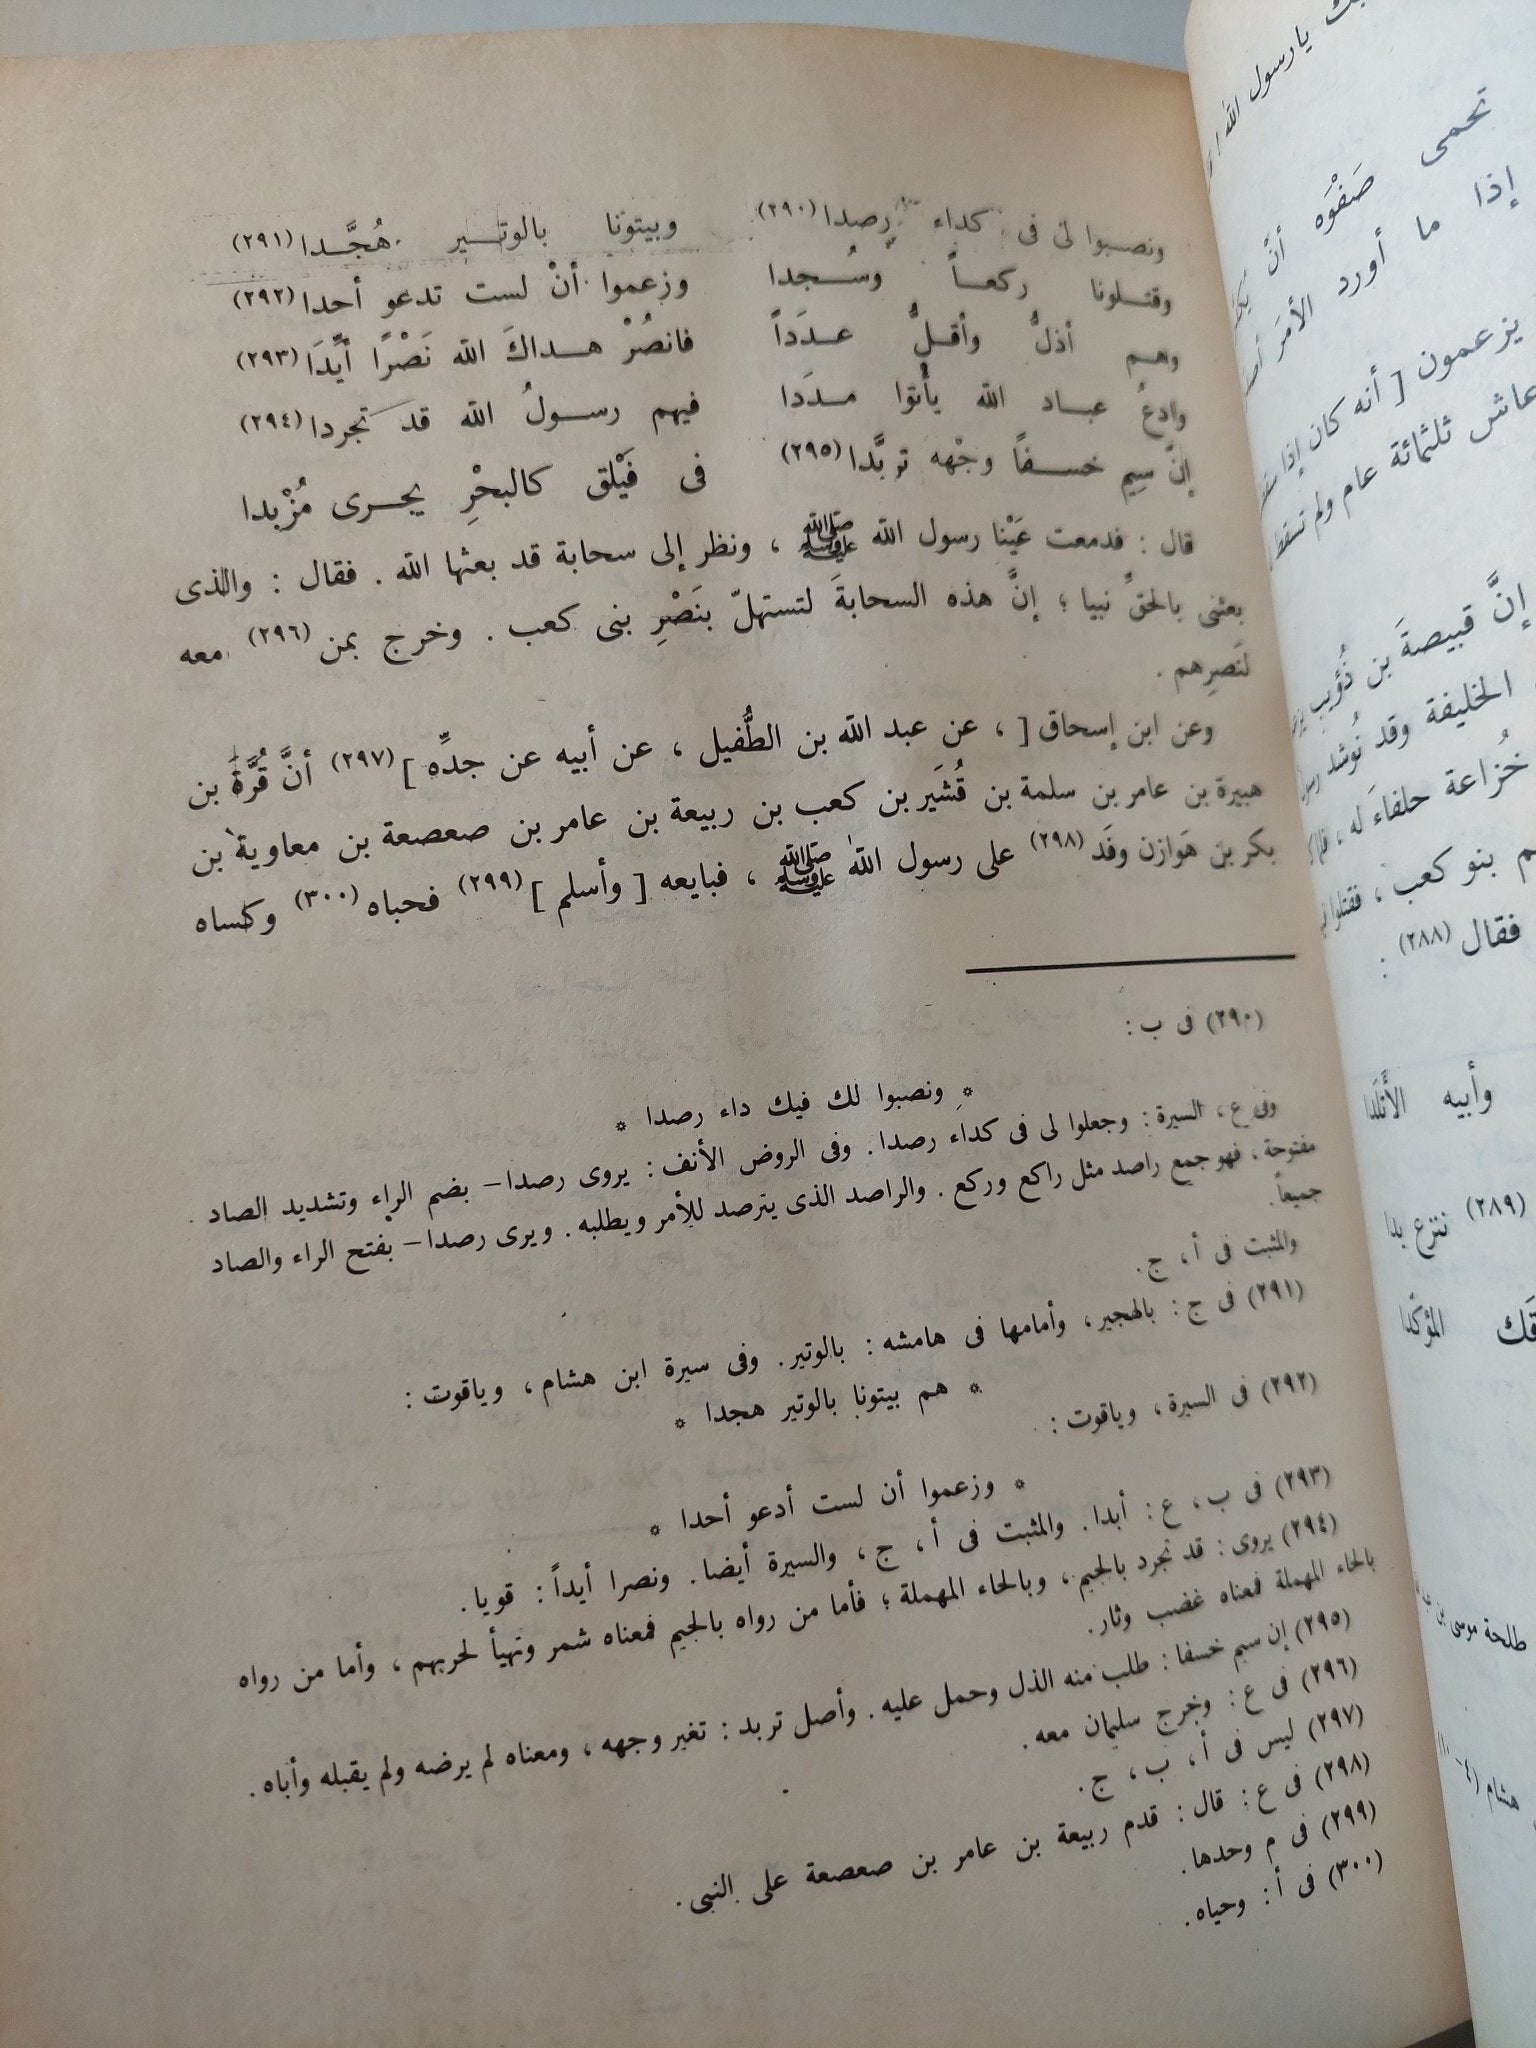 ونصبوا لى فى كداء رصدا (٢٩٠) وبيتونا بالوتير هُجَّدا (٢٩١)
وقتلونا ركعاً وسُجدا وزعموا أنْ لست تدعو أحدا (٢٩٢)
وهم أذلُّ وأقلُّ عدَداً فانصُرْ هداكَ الله نَصْرًا أيِّدَا (٢٩٣)
وادعُ عباد الله يأتوا مدَدا فيهم رسولُ الله قد تجردا (٢٩٤)
إنَّ سِيم خسفاً وجْهه تربَّدا (٢٩٥) فى فَيْلق كالبحْرِ يجرى مُزْبدا
قال : فدمعت عَيْنا رسول الله ﷺ ، ونظر إلى سحابة قد بعثها الله . فقال : والذى
بعثنى بالحقِّ نبيا ؛ إنَّ هذه السحابةَ لتستهلّ بنَصْرِ بنى كعب . وخرج بمن (٢٩٦) معه
لنَصرِهم .
وعن ابن إسحاق [ ، عن عبد الله بن الطُّفيل ، عن أبيه عن جدِّه ] (٢٩٧) أنَّ قُرَّةَ بن
هبيرة بن عامر بن سلمة بن قُشَير بن كعب بن ربيعة بن عامر بن صعصعة بن معاوية بن
بكر بن هَوازن وفَد (٢٩٨) على رسول الله ﷺ ، فبايعه [ وأسلم ] (٢٩٩) فحباه (٣٠٠) وكساه
(٢٩٠) فى ب :
* ونصبوا لك فيك داء رصدا *
وفى ع ، السيرة : وجعلوا لى فى كداء رصدا . وفى الروض الأنف : يروى رصدا – بضم الراء وتشديد الصاد
مفتوحة ، فهو جمع راصد مثل راكع وركع . والراصد الذى يترصد للأمر ويطلبه . ويرى رصدا – بفتح الراء والصاد
جميعاً .
والمثبت فى أ ، ج .
(٢٩١) فى ج : بالهجير ، وأمامها فى هامشه : بالوتير . وفى سيرة ابن هشام ، وياقوت :
* هم بيتونا بالوتير هجدا *
(٢٩٢) فى السيرة ، وياقوت :
* وزعموا أن لست أدعو أحدا *
(٢٩٣) فى ب ، ع : أبدا . والمثبت فى أ ، ج ، والسيرة أيضا . ونصرا أيداً : قويا .
(٢٩٤) يروى : قد تجرد بالجيم ، وبالحاء المهملة ؛ فأما من رواه بالجيم فمعناه شمر وتهيأ لحربهم ، وأما من رواه
بالحاء المهملة فمعناه غضب وثار .
(٢٩٥) إن سيم خسفا : طلب منه الذل وحمل عليه . وأصل تربد : تغير وجهه ، ومعناه لم يرضه ولم يقبله وأباه .
(٢٩٦) فى ع : وخرج سليمان معه .
(٢٩٧) ليس فى أ ، ب ، ج .
(٢٩٨) فى ع : قال : قدم ربيعة بن عامر بن صعصعة على النبى .
(٢٩٩) فى م وحدها .
(٣٠٠) فى أ : وحياه .
يا رسول الله
تحمى صَفْوَه أنْ
إذا ما أورد الأمرَ
يزعمون [ أنه كان إذا
عاش ثلثمائة عام ولم تسقط
إنَّ قبيصةَ بن ذُؤيب
الخليفة وقد نُوشد
خُزاعة حلفاءَ له ،
بنو كعب ، فقتلوا
فقال (٢٨٨) :
وأبيه الأتْلَدا
(٢٨٩) ننزع يدا
المؤكّدا
طلحة موسى بن
هشام